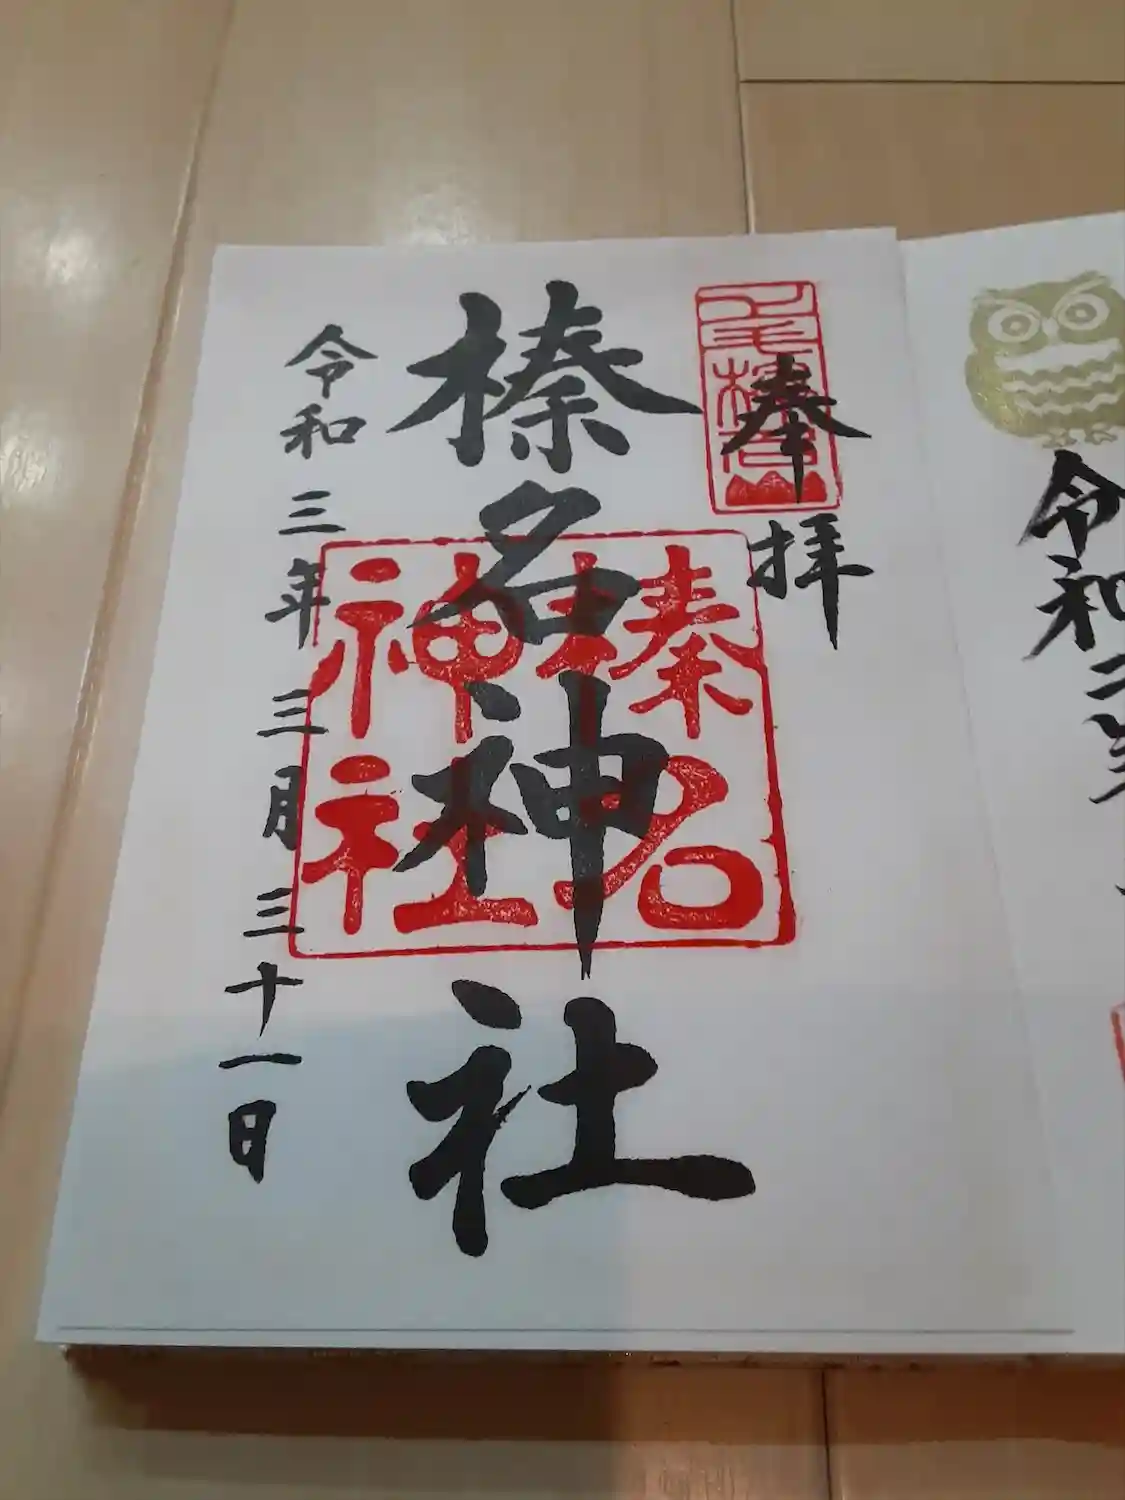 奉拝
上毛榛名山
榛名神社
榛名
神社
令和三年三月三十一日
令和二年